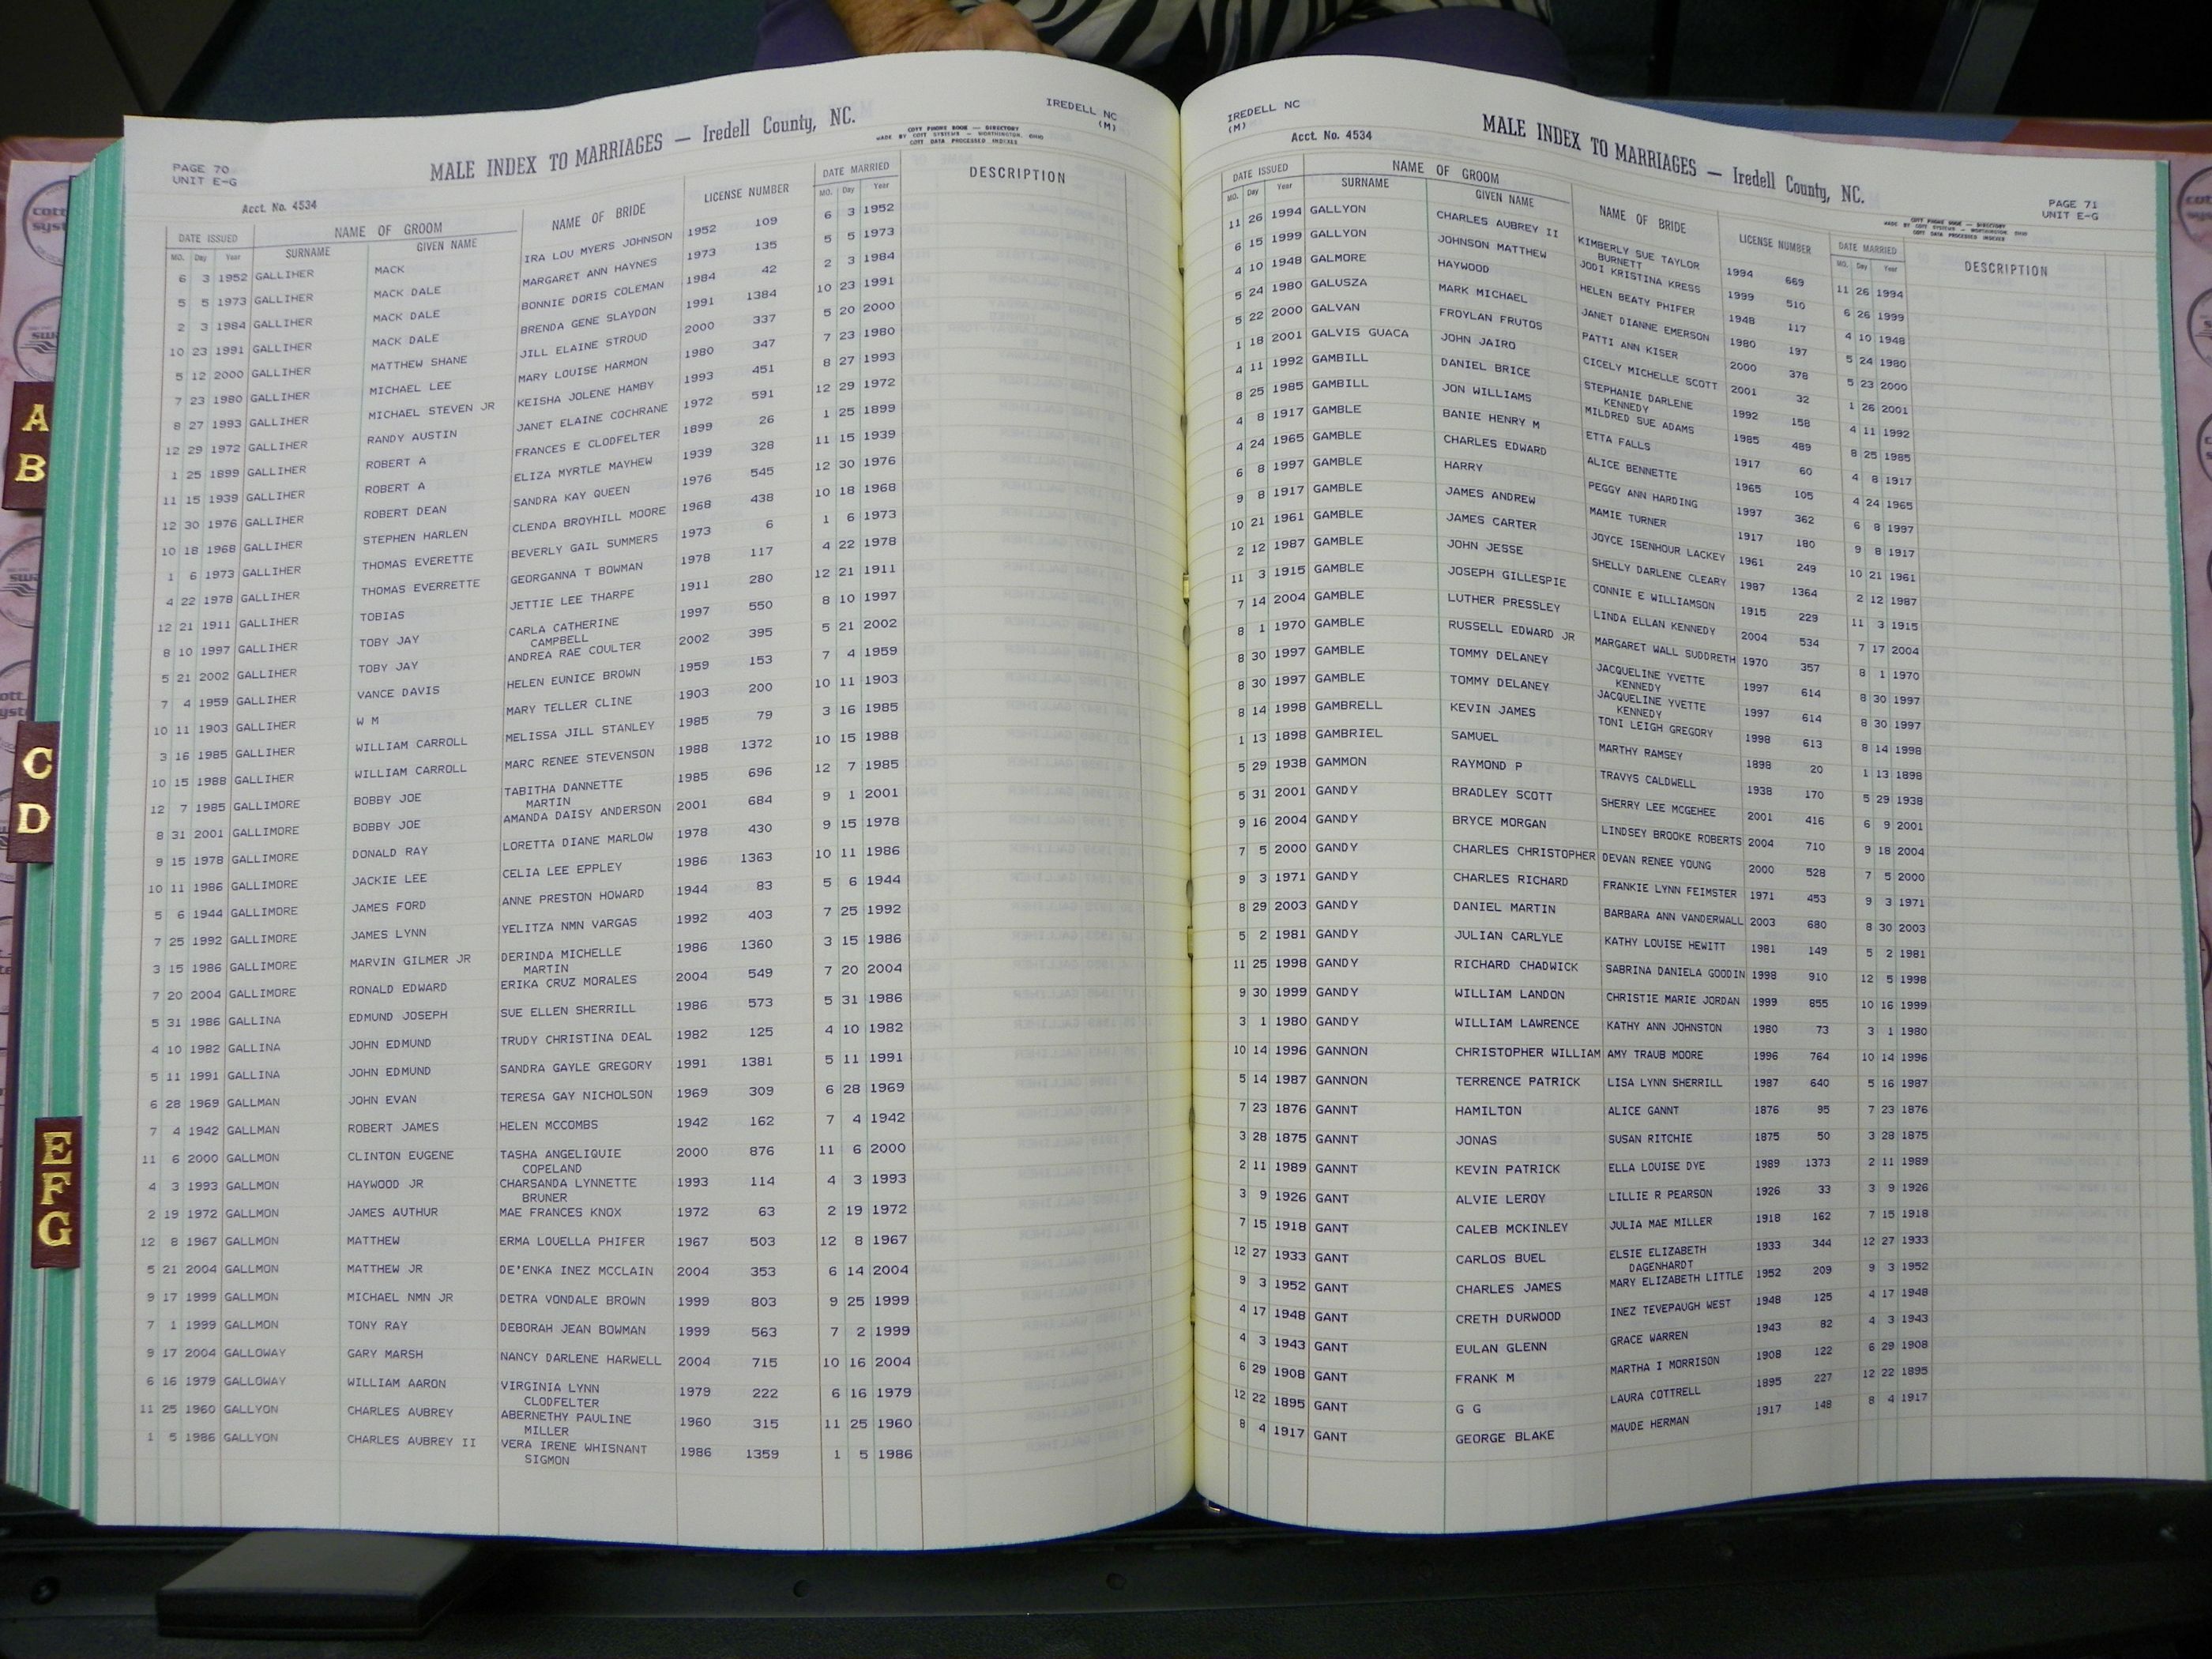 IREDELL NC
(M)
PAGE 70
UNIT E-G
MALE INDEX TO MARRIAGES — Iredell County, NC.
COTT PHONE BOOK — DIRECTORY
MADE BY COTT SYSTEMS — WORTHINGTON, OHIO
COTT DATA PROCESSED INDEXES
Acct. No. 4534
DATE ISSUED NAME OF GROOM NAME OF BRIDE LICENSE NUMBER DATE MARRIED DESCRIPTION
MO. Day Year SURNAME GIVEN NAME MO. Day Year
6 3 1952 GALLIHER MACK IRA LOU MYERS JOHNSON 1952 109 6 3 1952
5 5 1973 GALLIHER MACK DALE MARGARET ANN HAYNES 1973 135 5 5 1973
2 3 1984 GALLIHER MACK DALE BONNIE DORIS COLEMAN 1984 42 2 3 1984
10 23 1991 GALLIHER MACK DALE BRENDA GENE SLAYDON 1991 1384 10 23 1991
5 12 2000 GALLIHER MATTHEW SHANE JILL ELAINE STROUD 2000 337 5 20 2000
7 23 1980 GALLIHER MICHAEL LEE MARY LOUISE HARMON 1980 347 7 23 1980
8 27 1993 GALLIHER MICHAEL STEVEN JR KEISHA JOLENE HAMBY 1993 451 8 27 1993
12 29 1972 GALLIHER RANDY AUSTIN JANET ELAINE COCHRANE 1972 591 12 29 1972
1 25 1899 GALLIHER ROBERT A FRANCES E CLODFELTER 1899 26 1 25 1899
11 15 1939 GALLIHER ROBERT A ELIZA MYRTLE MAYHEW 1939 328 11 15 1939
12 30 1976 GALLIHER ROBERT DEAN SANDRA KAY QUEEN 1976 545 12 30 1976
10 18 1968 GALLIHER STEPHEN HARLEN CLENDA BROYHILL MOORE 1968 438 10 18 1968
1 6 1973 GALLIHER THOMAS EVERETTE BEVERLY GAIL SUMMERS 1973 6 1 6 1973
4 22 1978 GALLIHER THOMAS EVERRETTE GEORGANNA T BOWMAN 1978 117 4 22 1978
12 21 1911 GALLIHER TOBIAS JETTIE LEE THARPE 1911 280 12 21 1911
8 10 1997 GALLIHER TOBY JAY CARLA CATHERINE 1997 550 8 10 1997
CAMPBELL
5 21 2002 GALLIHER TOBY JAY ANDREA RAE COULTER 2002 395 5 21 2002
7 4 1959 GALLIHER VANCE DAVIS HELEN EUNICE BROWN 1959 153 7 4 1959
10 11 1903 GALLIHER W M MARY TELLER CLINE 1903 200 10 11 1903
3 16 1985 GALLIHER WILLIAM CARROLL MELISSA JILL STANLEY 1985 79 3 16 1985
10 15 1988 GALLIHER WILLIAM CARROLL MARC RENEE STEVENSON 1988 1372 10 15 1988
12 7 1985 GALLIMORE BOBBY JOE TABITHA DANNETTE 1985 696 12 7 1985
MARTIN
8 31 2001 GALLIMORE BOBBY JOE AMANDA DAISY ANDERSON 2001 684 9 1 2001
9 15 1978 GALLIMORE DONALD RAY LORETTA DIANE MARLOW 1978 430 9 15 1978
10 11 1986 GALLIMORE JACKIE LEE CELIA LEE EPPLEY 1986 1363 10 11 1986
5 6 1944 GALLIMORE JAMES FORD ANNE PRESTON HOWARD 1944 83 5 6 1944
7 25 1992 GALLIMORE JAMES LYNN YELITZA NMN VARGAS 1992 403 7 25 1992
3 15 1986 GALLIMORE MARVIN GILMER JR DERINDA MICHELLE 1986 1360 3 15 1986
MARTIN
7 20 2004 GALLIMORE RONALD EDWARD ERIKA CRUZ MORALES 2004 549 7 20 2004
5 31 1986 GALLINA EDMUND JOSEPH SUE ELLEN SHERRILL 1986 573 5 31 1986
4 10 1982 GALLINA JOHN EDMUND TRUDY CHRISTINA DEAL 1982 125 4 10 1982
5 11 1991 GALLINA JOHN EDMUND SANDRA GAYLE GREGORY 1991 1381 5 11 1991
6 28 1969 GALLMAN JOHN EVAN TERESA GAY NICHOLSON 1969 309 6 28 1969
7 4 1942 GALLMAN ROBERT JAMES HELEN MCCOMBS 1942 162 7 4 1942
11 6 2000 GALLMON CLINTON EUGENE TASHA ANGELIQUIE 2000 876 11 6 2000
COPELAND
4 3 1993 GALLMON HAYWOOD JR CHARSANDA LYNNETTE 1993 114 4 3 1993
BRUNER
2 19 1972 GALLMON JAMES AUTHUR MAE FRANCES KNOX 1972 63 2 19 1972
12 8 1967 GALLMON MATTHEW ERMA LOUELLA PHIFER 1967 503 12 8 1967
5 21 2004 GALLMON MATTHEW JR DE'ENKA INEZ MCCLAIN 2004 353 6 14 2004
9 17 1999 GALLMON MICHAEL NMN JR DETRA VONDALE BROWN 1999 803 9 25 1999
7 1 1999 GALLMON TONY RAY DEBORAH JEAN BOWMAN 1999 563 7 2 1999
9 17 2004 GALLOWAY GARY MARSH NANCY DARLENE HARWELL 2004 715 10 16 2004
6 16 1979 GALLOWAY WILLIAM AARON VIRGINIA LYNN 1979 222 6 16 1979
CLODFELTER
11 25 1960 GALLYON CHARLES AUBREY ABERNETHY PAULINE 1960 315 11 25 1960
MILLER
1 5 1986 GALLYON CHARLES AUBREY II VERA IRENE WHISNANT 1986 1359 1 5 1986
SIGMON
IREDELL NC
(M)
Acct. No. 4534
MALE INDEX TO MARRIAGES — Iredell County, NC.
PAGE 71
UNIT E-G
COTT PHONE BOOK — DIRECTORY
MADE BY COTT SYSTEMS — WORTHINGTON, OHIO
COTT DATA PROCESSED INDEXES
DATE ISSUED NAME OF GROOM NAME OF BRIDE LICENSE NUMBER DATE MARRIED DESCRIPTION
MO. Day Year SURNAME GIVEN NAME MO. Day Year
11 26 1994 GALLYON CHARLES AUBREY II KIMBERLY SUE TAYLOR 1994 669 11 26 1994
BURNETT
6 15 1999 GALLYON JOHNSON MATTHEW JODI KRISTINA KRESS 1999 510 6 26 1999
4 10 1948 GALMORE HAYWOOD HELEN BEATY PHIFER 1948 117 4 10 1948
5 24 1980 GALUSZA MARK MICHAEL JANET DIANNE EMERSON 1980 197 5 24 1980
5 22 2000 GALVAN FROYLAN FRUTOS PATTI ANN KISER 2000 378 5 23 2000
1 18 2001 GALVIS GUACA JOHN JAIRO CICELY MICHELLE SCOTT 2001 32 1 26 2001
4 11 1992 GAMBILL DANIEL BRICE STEPHANIE DARLENE 1992 158 4 11 1992
KENNEDY
8 25 1985 GAMBILL JON WILLIAMS MILDRED SUE ADAMS 1985 489 8 25 1985
4 8 1917 GAMBLE BANIE HENRY M ETTA FALLS 1917 60 4 8 1917
4 24 1965 GAMBLE CHARLES EDWARD ALICE BENNETTE 1965 105 4 24 1965
6 8 1997 GAMBLE HARRY PEGGY ANN HARDING 1997 362 6 8 1997
9 8 1917 GAMBLE JAMES ANDREW MAMIE TURNER 1917 180 9 8 1917
10 21 1961 GAMBLE JAMES CARTER JOYCE ISENHOUR LACKEY 1961 249 10 21 1961
2 12 1987 GAMBLE JOHN JESSE SHELLY DARLENE CLEARY 1987 1364 2 12 1987
11 3 1915 GAMBLE JOSEPH GILLESPIE CONNIE E WILLIAMSON 1915 229 11 3 1915
7 14 2004 GAMBLE LUTHER PRESSLEY LINDA ELLAN KENNEDY 2004 534 7 17 2004
8 1 1970 GAMBLE RUSSELL EDWARD JR MARGARET WALL SUDDRETH 1970 357 8 1 1970
8 30 1997 GAMBLE TOMMY DELANEY JACQUELINE YVETTE 1997 614 8 30 1997
KENNEDY
8 30 1997 GAMBLE TOMMY DELANEY JACQUELINE YVETTE 1997 614 8 30 1997
KENNEDY
8 14 1998 GAMBRELL KEVIN JAMES TONI LEIGH GREGORY 1998 613 8 14 1998
1 13 1898 GAMBRIEL SAMUEL MARTHY RAMSEY 1898 20 1 13 1898
5 29 1938 GAMMON RAYMOND P TRAVYS CALDWELL 1938 170 5 29 1938
5 31 2001 GANDY BRADLEY SCOTT SHERRY LEE MCGEHEE 2001 416 6 9 2001
9 16 2004 GANDY BRYCE MORGAN LINDSEY BROOKE ROBERTS 2004 710 9 18 2004
7 5 2000 GANDY CHARLES CHRISTOPHER DEVAN RENEE YOUNG 2000 528 7 5 2000
9 3 1971 GANDY CHARLES RICHARD FRANKIE LYNN FEIMSTER 1971 453 9 3 1971
8 29 2003 GANDY DANIEL MARTIN BARBARA ANN VANDERWALL 2003 680 8 30 2003
5 2 1981 GANDY JULIAN CARLYLE KATHY LOUISE HEWITT 1981 149 5 2 1981
11 25 1998 GANDY RICHARD CHADWICK SABRINA DANIELA GOODIN 1998 910 12 5 1998
9 30 1999 GANDY WILLIAM LANDON CHRISTIE MARIE JORDAN 1999 855 10 16 1999
3 1 1980 GANDY WILLIAM LAWRENCE KATHY ANN JOHNSTON 1980 73 3 1 1980
10 14 1996 GANNON CHRISTOPHER WILLIAM AMY TRAUB MOORE 1996 764 10 14 1996
5 14 1987 GANNON TERRENCE PATRICK LISA LYNN SHERRILL 1987 640 5 16 1987
7 23 1876 GANNT HAMILTON ALICE GANNT 1876 95 7 23 1876
3 28 1875 GANNT JONAS SUSAN RITCHIE 1875 50 3 28 1875
2 11 1989 GANNT KEVIN PATRICK ELLA LOUISE DYE 1989 1373 2 11 1989
3 9 1926 GANT ALVIE LEROY LILLIE R PEARSON 1926 33 3 9 1926
7 15 1918 GANT CALEB MCKINLEY JULIA MAE MILLER 1918 162 7 15 1918
12 27 1933 GANT CARLOS BUEL ELSIE ELIZABETH 1933 344 12 27 1933
DAGENHARDT
9 3 1952 GANT CHARLES JAMES MARY ELIZABETH LITTLE 1952 209 9 3 1952
4 17 1948 GANT CRETH DURWOOD INEZ TEVEPAUGH WEST 1948 125 4 17 1948
4 3 1943 GANT EULAN GLENN GRACE WARREN 1943 82 4 3 1943
6 29 1908 GANT FRANK M MARTHA I MORRISON 1908 122 6 29 1908
12 22 1895 GANT G G LAURA COTTRELL 1895 227 12 22 1895
8 4 1917 GANT GEORGE BLAKE MAUDE HERMAN 1917 148 8 4 1917
A
B
C
D
E
F
G